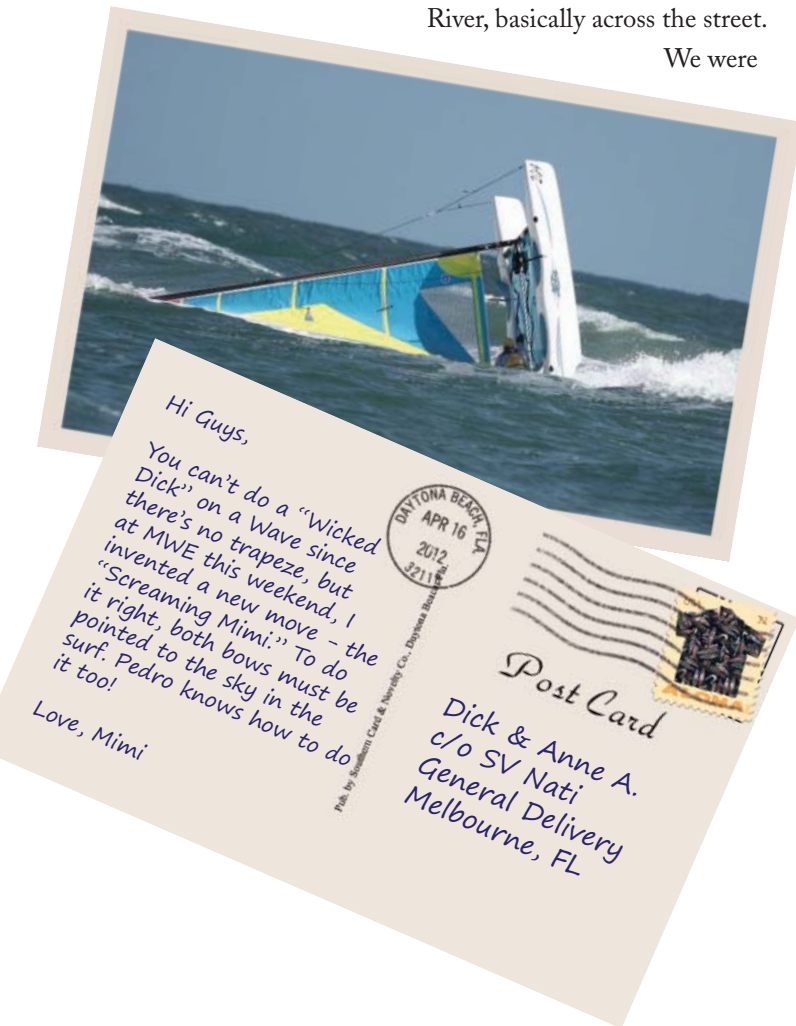 River, basically across the street.
We were
Hi Guys,
You can't do a “Wicked
Dick” on a Wave since
there's no trapeze, but
at MWE this weekend, I
invented a new move - the
“Screaming Mimi.” To do
it right, both bows must be
pointed to the sky in the
surf. Pedro knows how to do
it too!
Love, Mimi
DAYTONA BEACH, FLA.
APR 16
2012
Pub. by Southern Card & Novelty Co., Daytona Beach,
Post Card
Dick & Anne A.
c/o SV Nati
General Delivery
Melbourne, FL